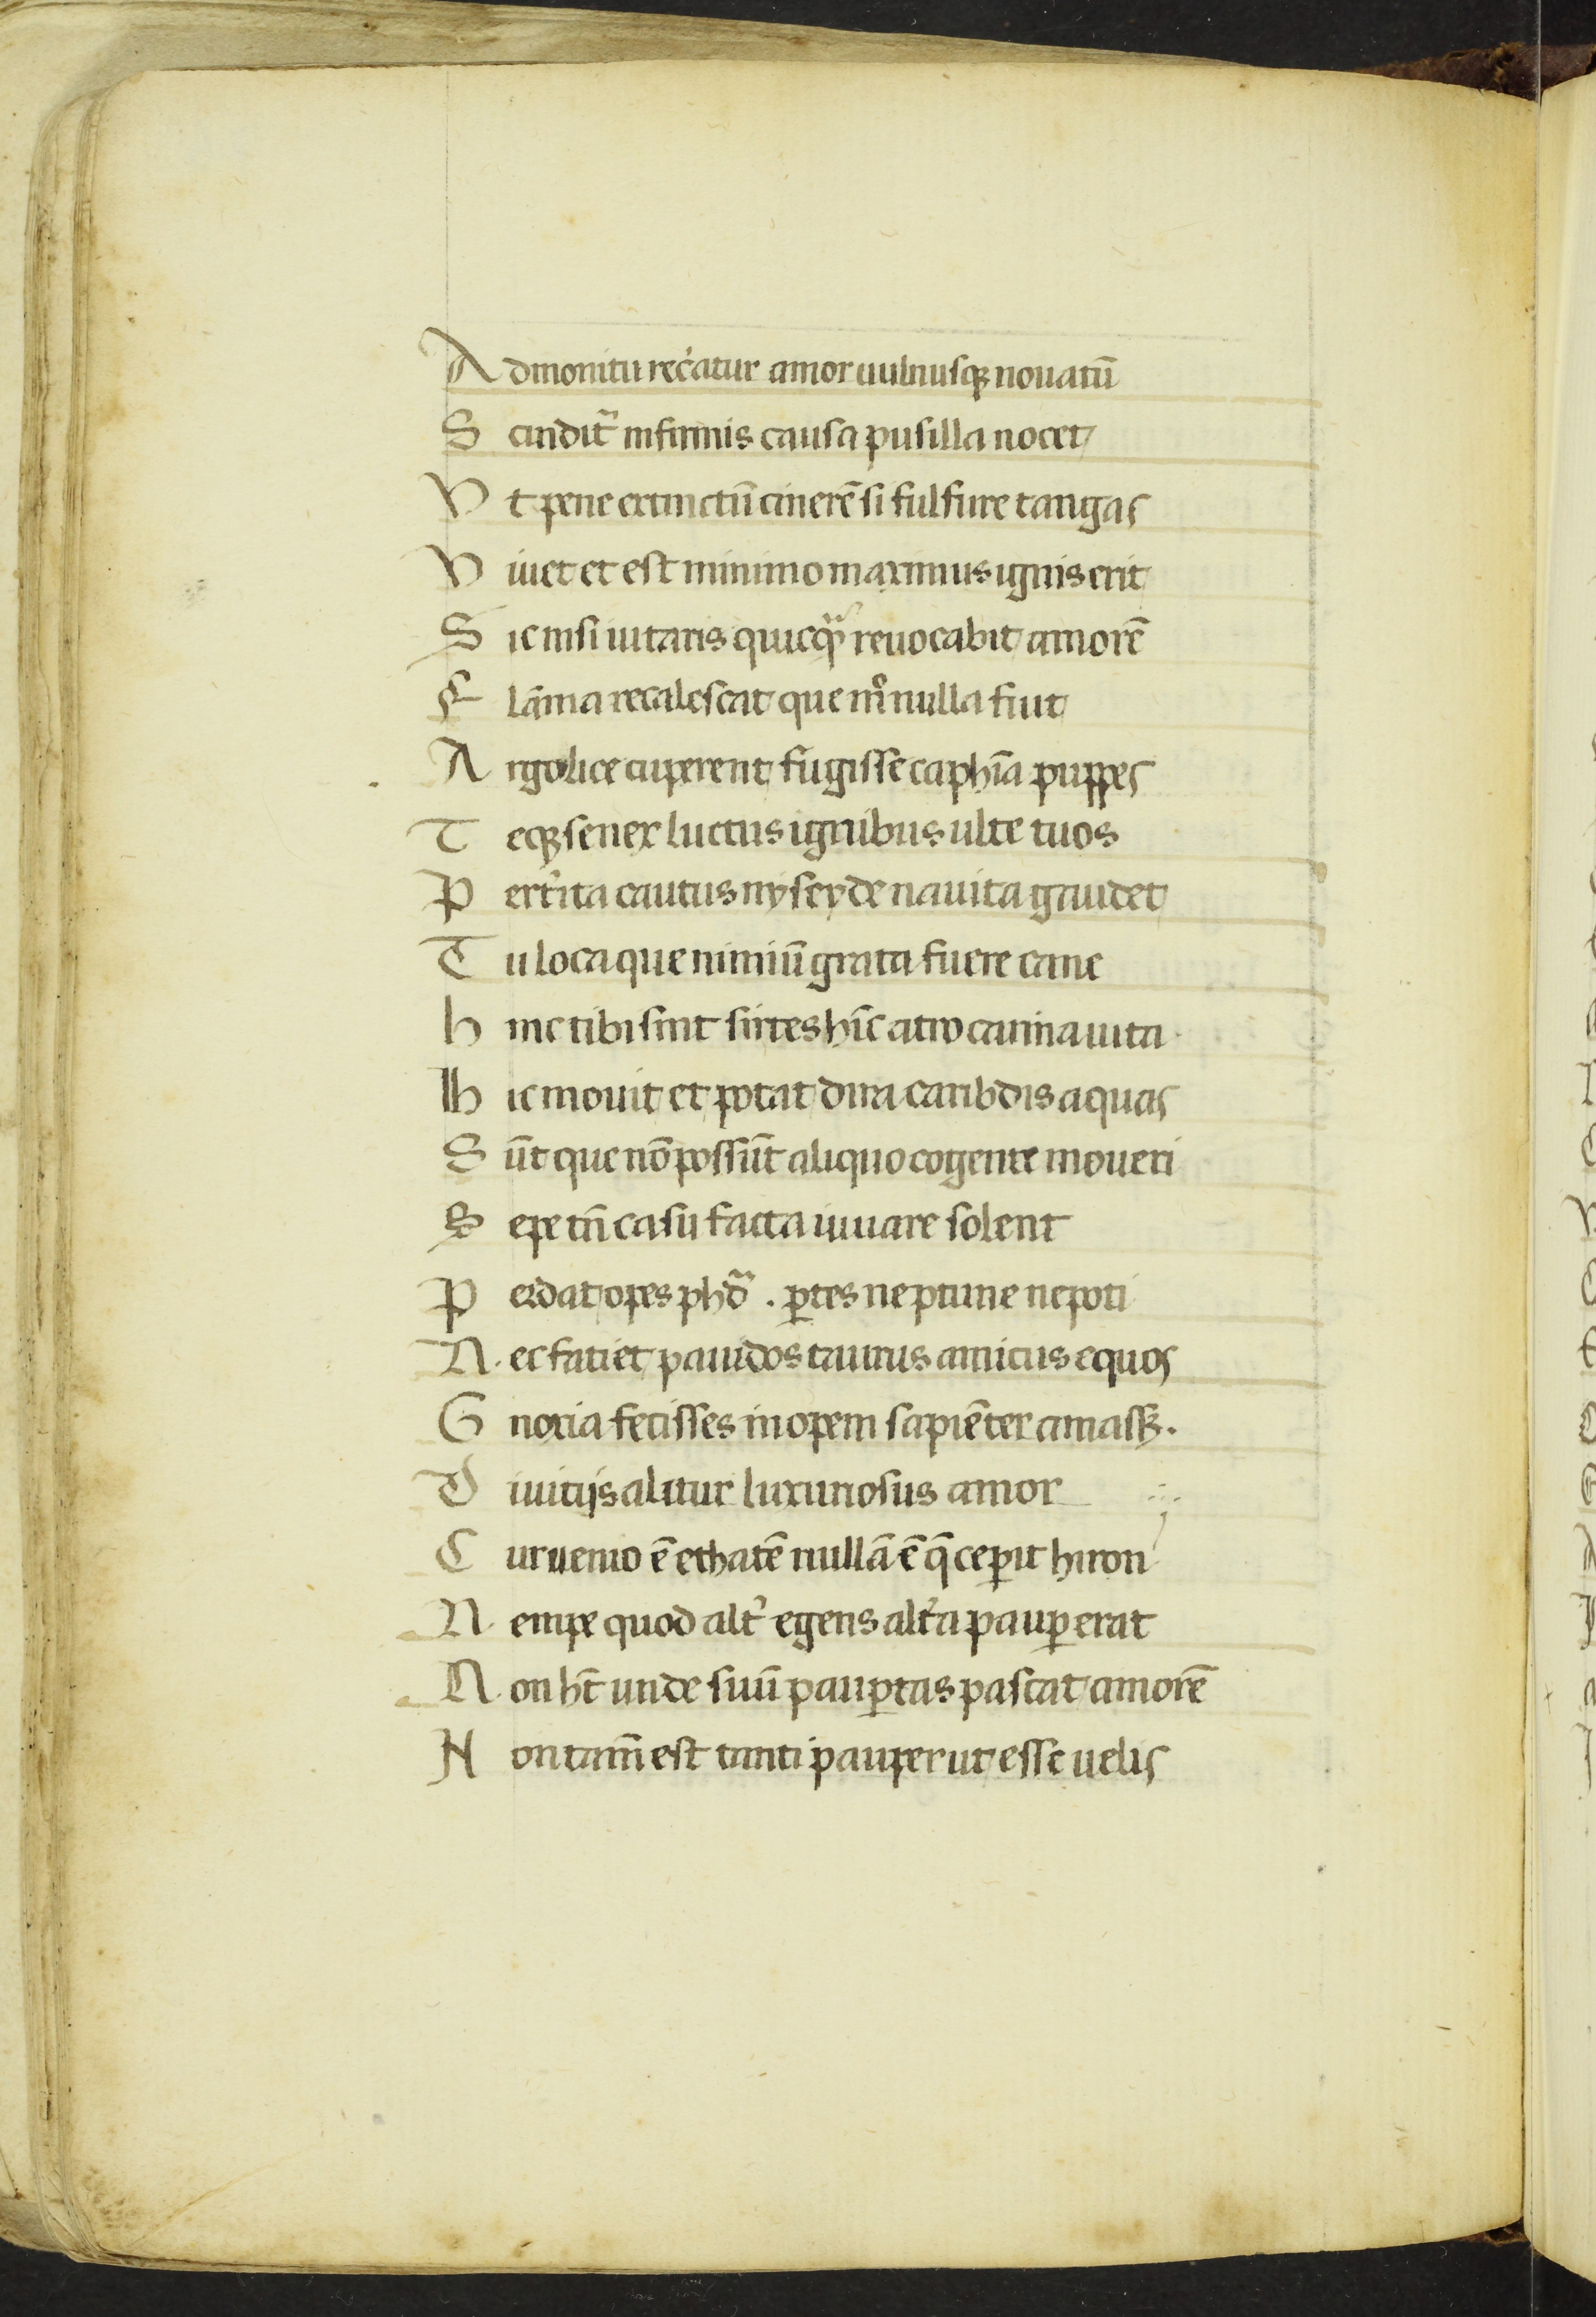 Admonitu rec̛atur amor uulnusqꝫ nouatū
Scindit᷑ infirmis causa pusilla nocet
Vt pene extinctū cinerē si sulfure tangas
Viuet et est minimo maximus ignis erit
Sic nisi uitaris quicqͣ᷒ reuocabit amorē
Flāma recalescat que m̊ nulla fuit
Argolice cuperent fugisse caphīa puppes
Teqꝫ senex luctus ignibus ulte tuos
Pert̛ita cautus nyseyde nauita gaudet
Tu loca que nimiū grata fuere caue
hinc tibi sint sirtes hīc atro carina uita
hic mouit et potat dira caribdis aquas
Sūt que nō possūt aliquo cogente moueri
Sepe tn̄ casu facta iuuare solent
Perdat opes phdᷓ . ꝑtes neptune nepoti
Nec faciet pauidos taurus amicus equos
Gnoxia fecisses inopem sapiēter amassꝫ.
Diuitijs alitur luxuriosus amor
Cur uemo ē ethatē nullā ē q̄ ceꝑit hiron
Nempe quod alt̛ egens alt̛a pauꝑ erat
Non ht̄ unde suū pauꝑtas pascat amorē
Non tam̄ est tanti pauper ut esse uelis